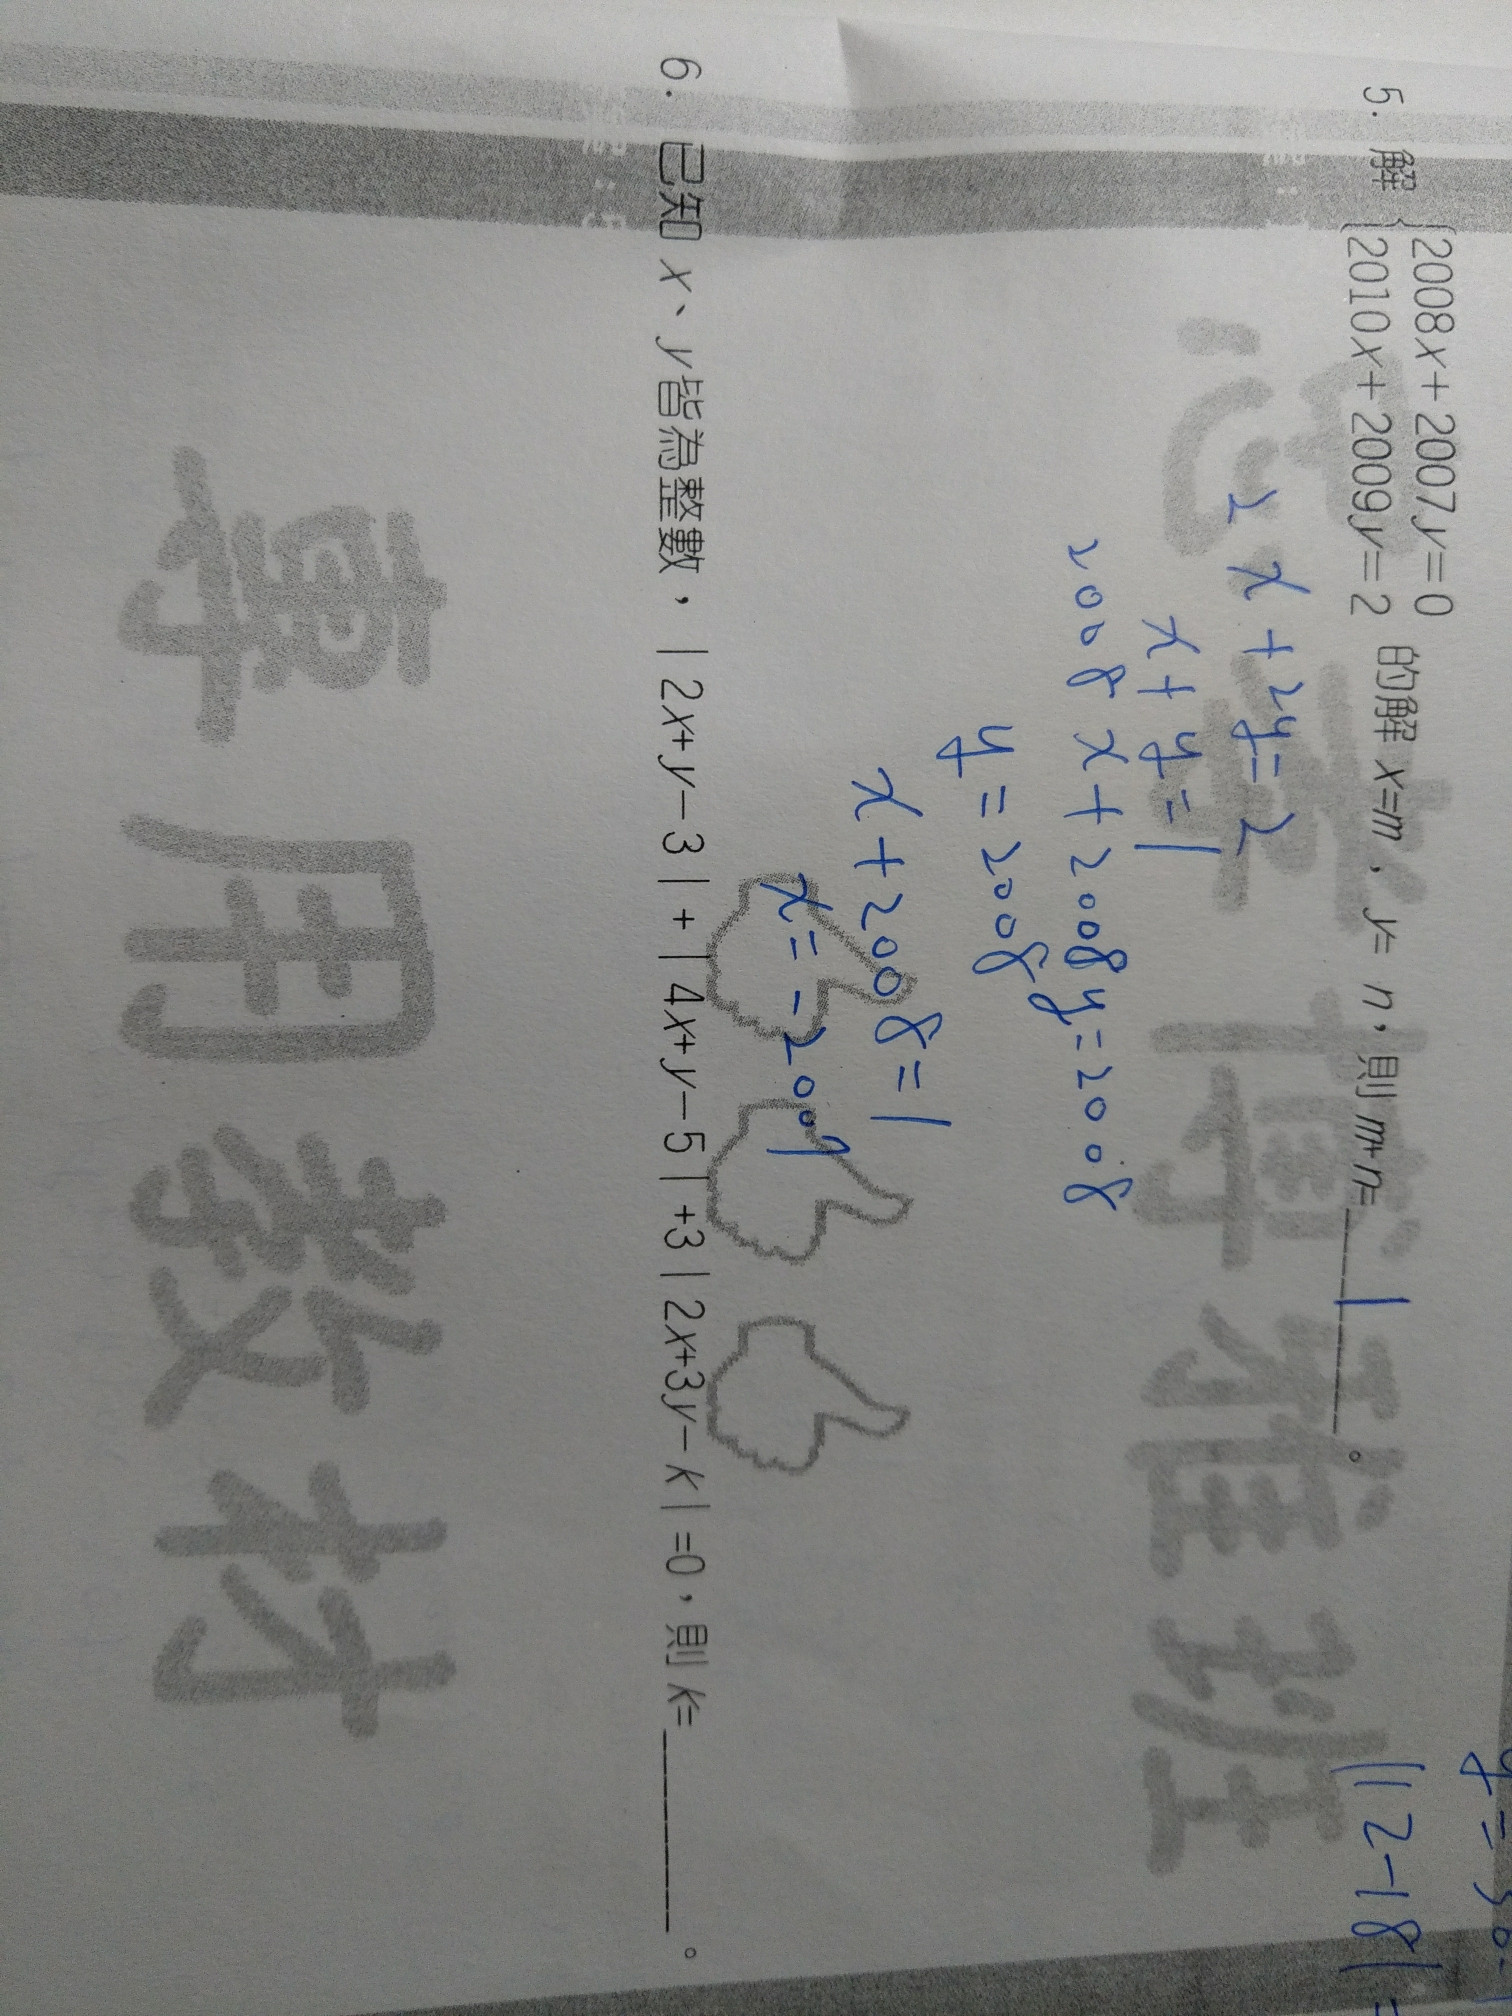 5. 解 {2008x+2007y=0
2010x+2009y=2 的解 x=m、y= n，則 m+n=____1____。
2x+2y=2
x+y=1
2008x+2008y=2008
y=2008
x+2008=1
x=-2009
6. 已知 x、y皆為整數，|2x+y−3|+|4x+y−5|+3|2x+3y−k|=0，則 k=________。
||2-18|=
專用教材